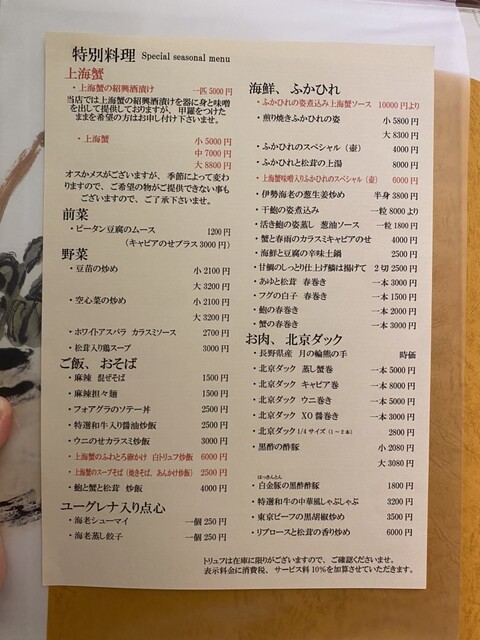 特別料理 Special seasonal menu
上海蟹
・上海蟹の紹興酒漬け 一匹 5000円
当店では上海蟹の紹興酒漬けを器に身と味噌
を出して提供しておりますが、甲羅をつけた
ままを希望の方はお申し付け下さいませ。
・上海蟹 小 5000円
中 7000円
大 8800円
オスかメスがございますが、季節によって変わ
りますので、ご希望の物がご提供できない事も
ございますので、ご了承下さいませ。
前菜
・ピータン豆腐のムース 1200円
(キャビアのせプラス 3000円)
野菜
・豆苗の炒め 小 2100円
大 3200円
・空心菜の炒め 小 2100円
大 3200円
・ホワイトアスパラ カラスミソース 2700円
・松茸入り鶏スープ 3000円
ご飯、おそば
・麻辣 混ぜそば 1500円
・麻辣担々麺 1500円
・フォアグラのソテー丼 2500円
・特選和牛入り醤油炒飯 2500円
・ウニのせカラスミ炒飯 3000円
・上海蟹のふわとろ卵かけ 白トリュフ炒飯 6000円
・上海蟹のスープそば(焼きそば、あんかけ炒飯) 2500円
・鮑と蟹と松茸 炒飯 4000円
ユーグレナ入り点心
・海老シューマイ 一個 250円
・海老蒸し餃子 一個 250円
海鮮、ふかひれ
・ふかひれの姿煮込み上海蟹ソース 10000円より
・煎り焼きふかひれの姿 小 5800円
大 8300円
・ふかひれのスペシャル(壺) 4000円
・ふかひれと松茸の上湯 8000円
・上海蟹味噌入りふかひれのスペシャル(壺) 6000円
・伊勢海老の葱生姜炒め 半身 3800円
・干鮑の姿煮込み 一粒 8000より
・活き鮑の姿蒸し 葱油ソース 一粒 1800円
・蟹と春雨のカラスミキャビアのせ 4000円
・海鮮と豆腐の辛味土鍋 2500円
・甘鯛のしっとり仕上げ鱗は揚げて 2切 2500円
・あゆと松茸 春巻き 一本 3000円
・フグの白子 春巻き 一本 1500円
・鮑の春巻き 一本 2000円
・蟹の春巻き 一本 3000円
お肉、北京ダック
・長野県産 月の輪熊の手 時価
・北京ダック 蒸し蟹巻 一本 5000円
・北京ダック キャビア巻 一本 8000円
・北京ダック ウニ巻き 一本 5000円
・北京ダック XO醬巻き 一本 3000円
・北京ダック1/4サイズ(1~2本) 2800円
・黒酢の酢豚 小 2080円
大 3080円
はっきんとん
・白金豚の黒酢酢豚 1800円
・特選和牛の中華風しゃぶしゃぶ 3200円
・東京ビーフの黒胡椒炒め 3500円
・リブロースと松茸の香り炒め 6000円
トリュフは在庫に限りがございますので、ご確認くださいませ。
表示料金に消費税、サービス料10%を加算させていただきます。